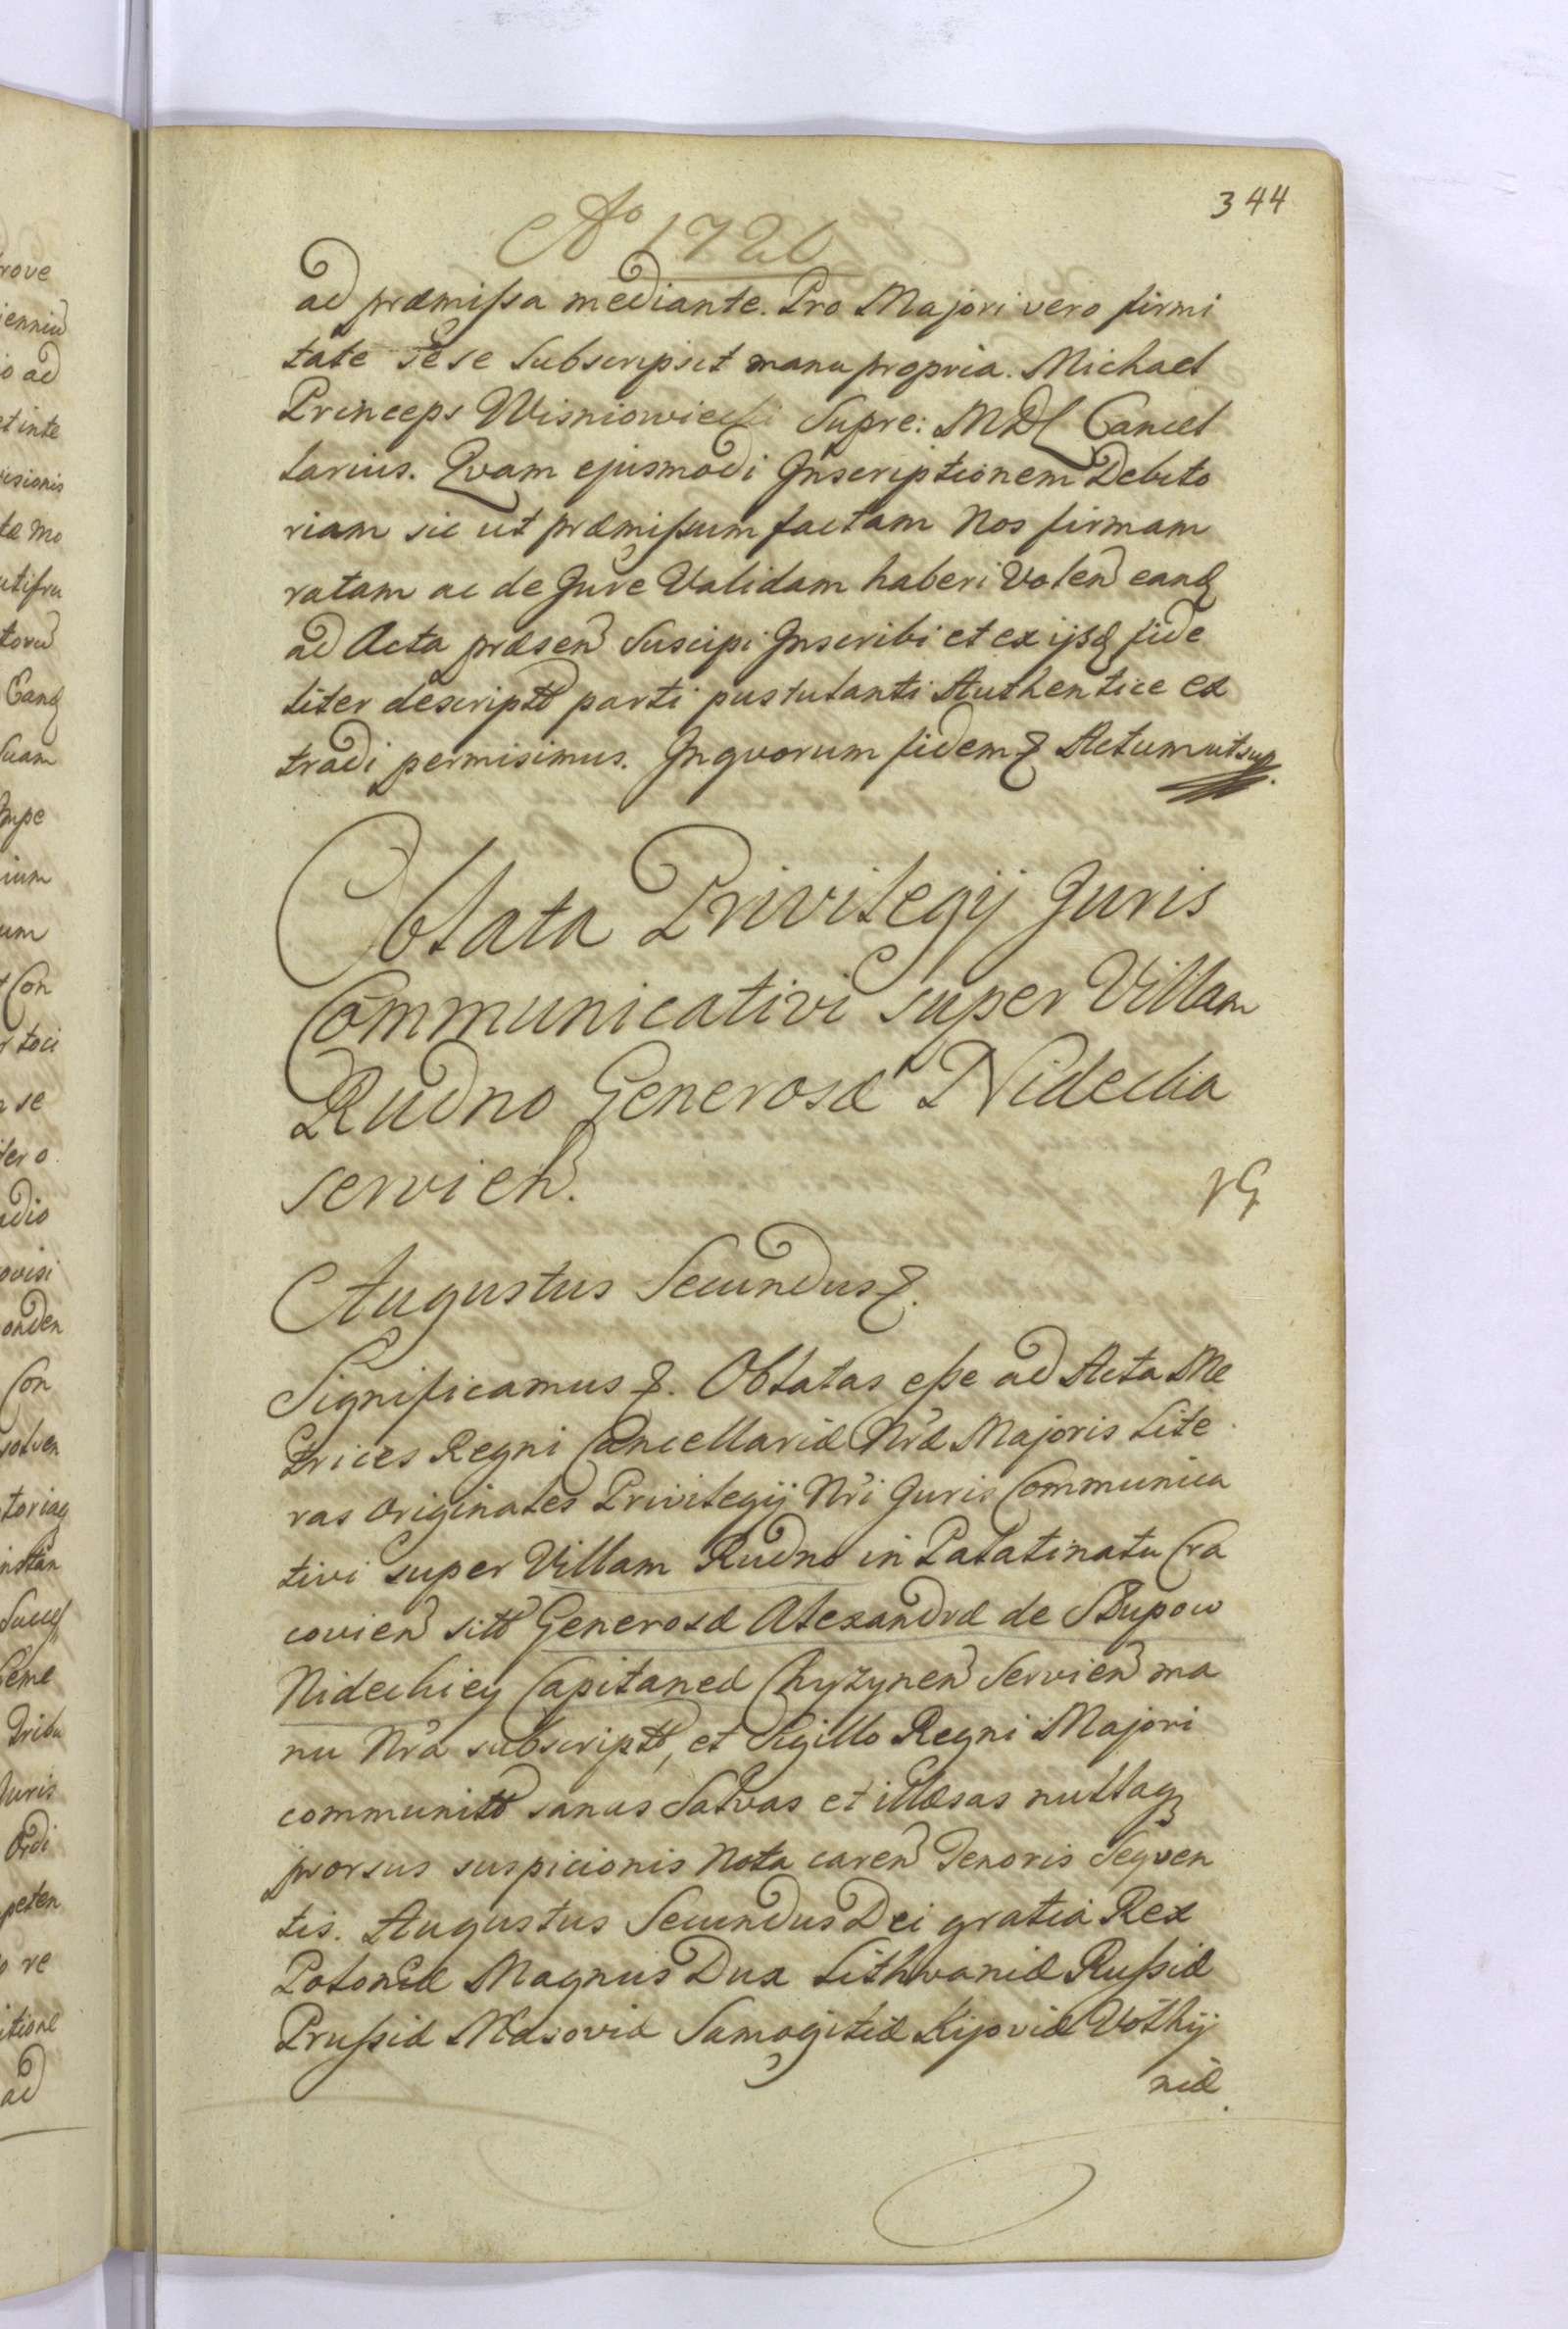 344
Ao 1726
ad præmissa mediante. Pro Majori vero firmi
tate sese Subscripsit manu propria. Michael
Princeps Wisniowiecki Supre: MDL Cancel
larius. Qvam ejusmodi Inscriptionem Debito
riam sic ut præmissum factam Nos firmam
ratam ac de Jure Validam haberi Volen eandq
ad Acta præsen Suscipi Inscribi et ex ijsdq fide
liter descriptã parti pustulanti Authentice ex
tradi permisimus. In qvorum fidem & Actum ut sup.
Oblata Privilegij Juris
Communicativi super Villam
Rudno Generosæ Nidecka
servien.
Augustus Secundus &.
Significamus &. Oblatas esse ad Acta Me
trices Regni Cancellariæ Nræ Majoris Lite
ras originales Privilegij Nri Juris Communica
tivi super Villam Rudno in Palatinatu Cra
covien sitã Generosæ Alexandræ de Słupow
Nideckiey Capitaneæ Chyzynen Servien ma
nu Nrã subscriptã, et Sigillo Regni Majori
communitã sanas Salvas et illæsas nullaqz
prorsus suspicionis Nota caren Tenoris Seqven
tis. Augustus Secundus Dei gratiâ Rex
Poloniæ Magnus Dux Lithvaniæ Russiæ
Prussiæ Masoviæ Samogitiæ Kijoviæ Volhij
niæ.